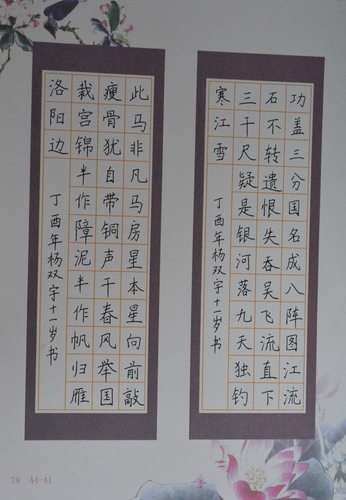 功盖三分国名成八阵图江流
石不转遗恨失吞吴飞流直下
三千尺疑是银河落九天独钓
寒江雪
丁酉年杨双字十一岁书
此马非凡马房星本星向前敲
瘦骨犹自带铜声千春风举国
栽宫锦半作障泥半作帆归雁
洛阳边
丁酉年杨双字十一岁书
78 A4-41